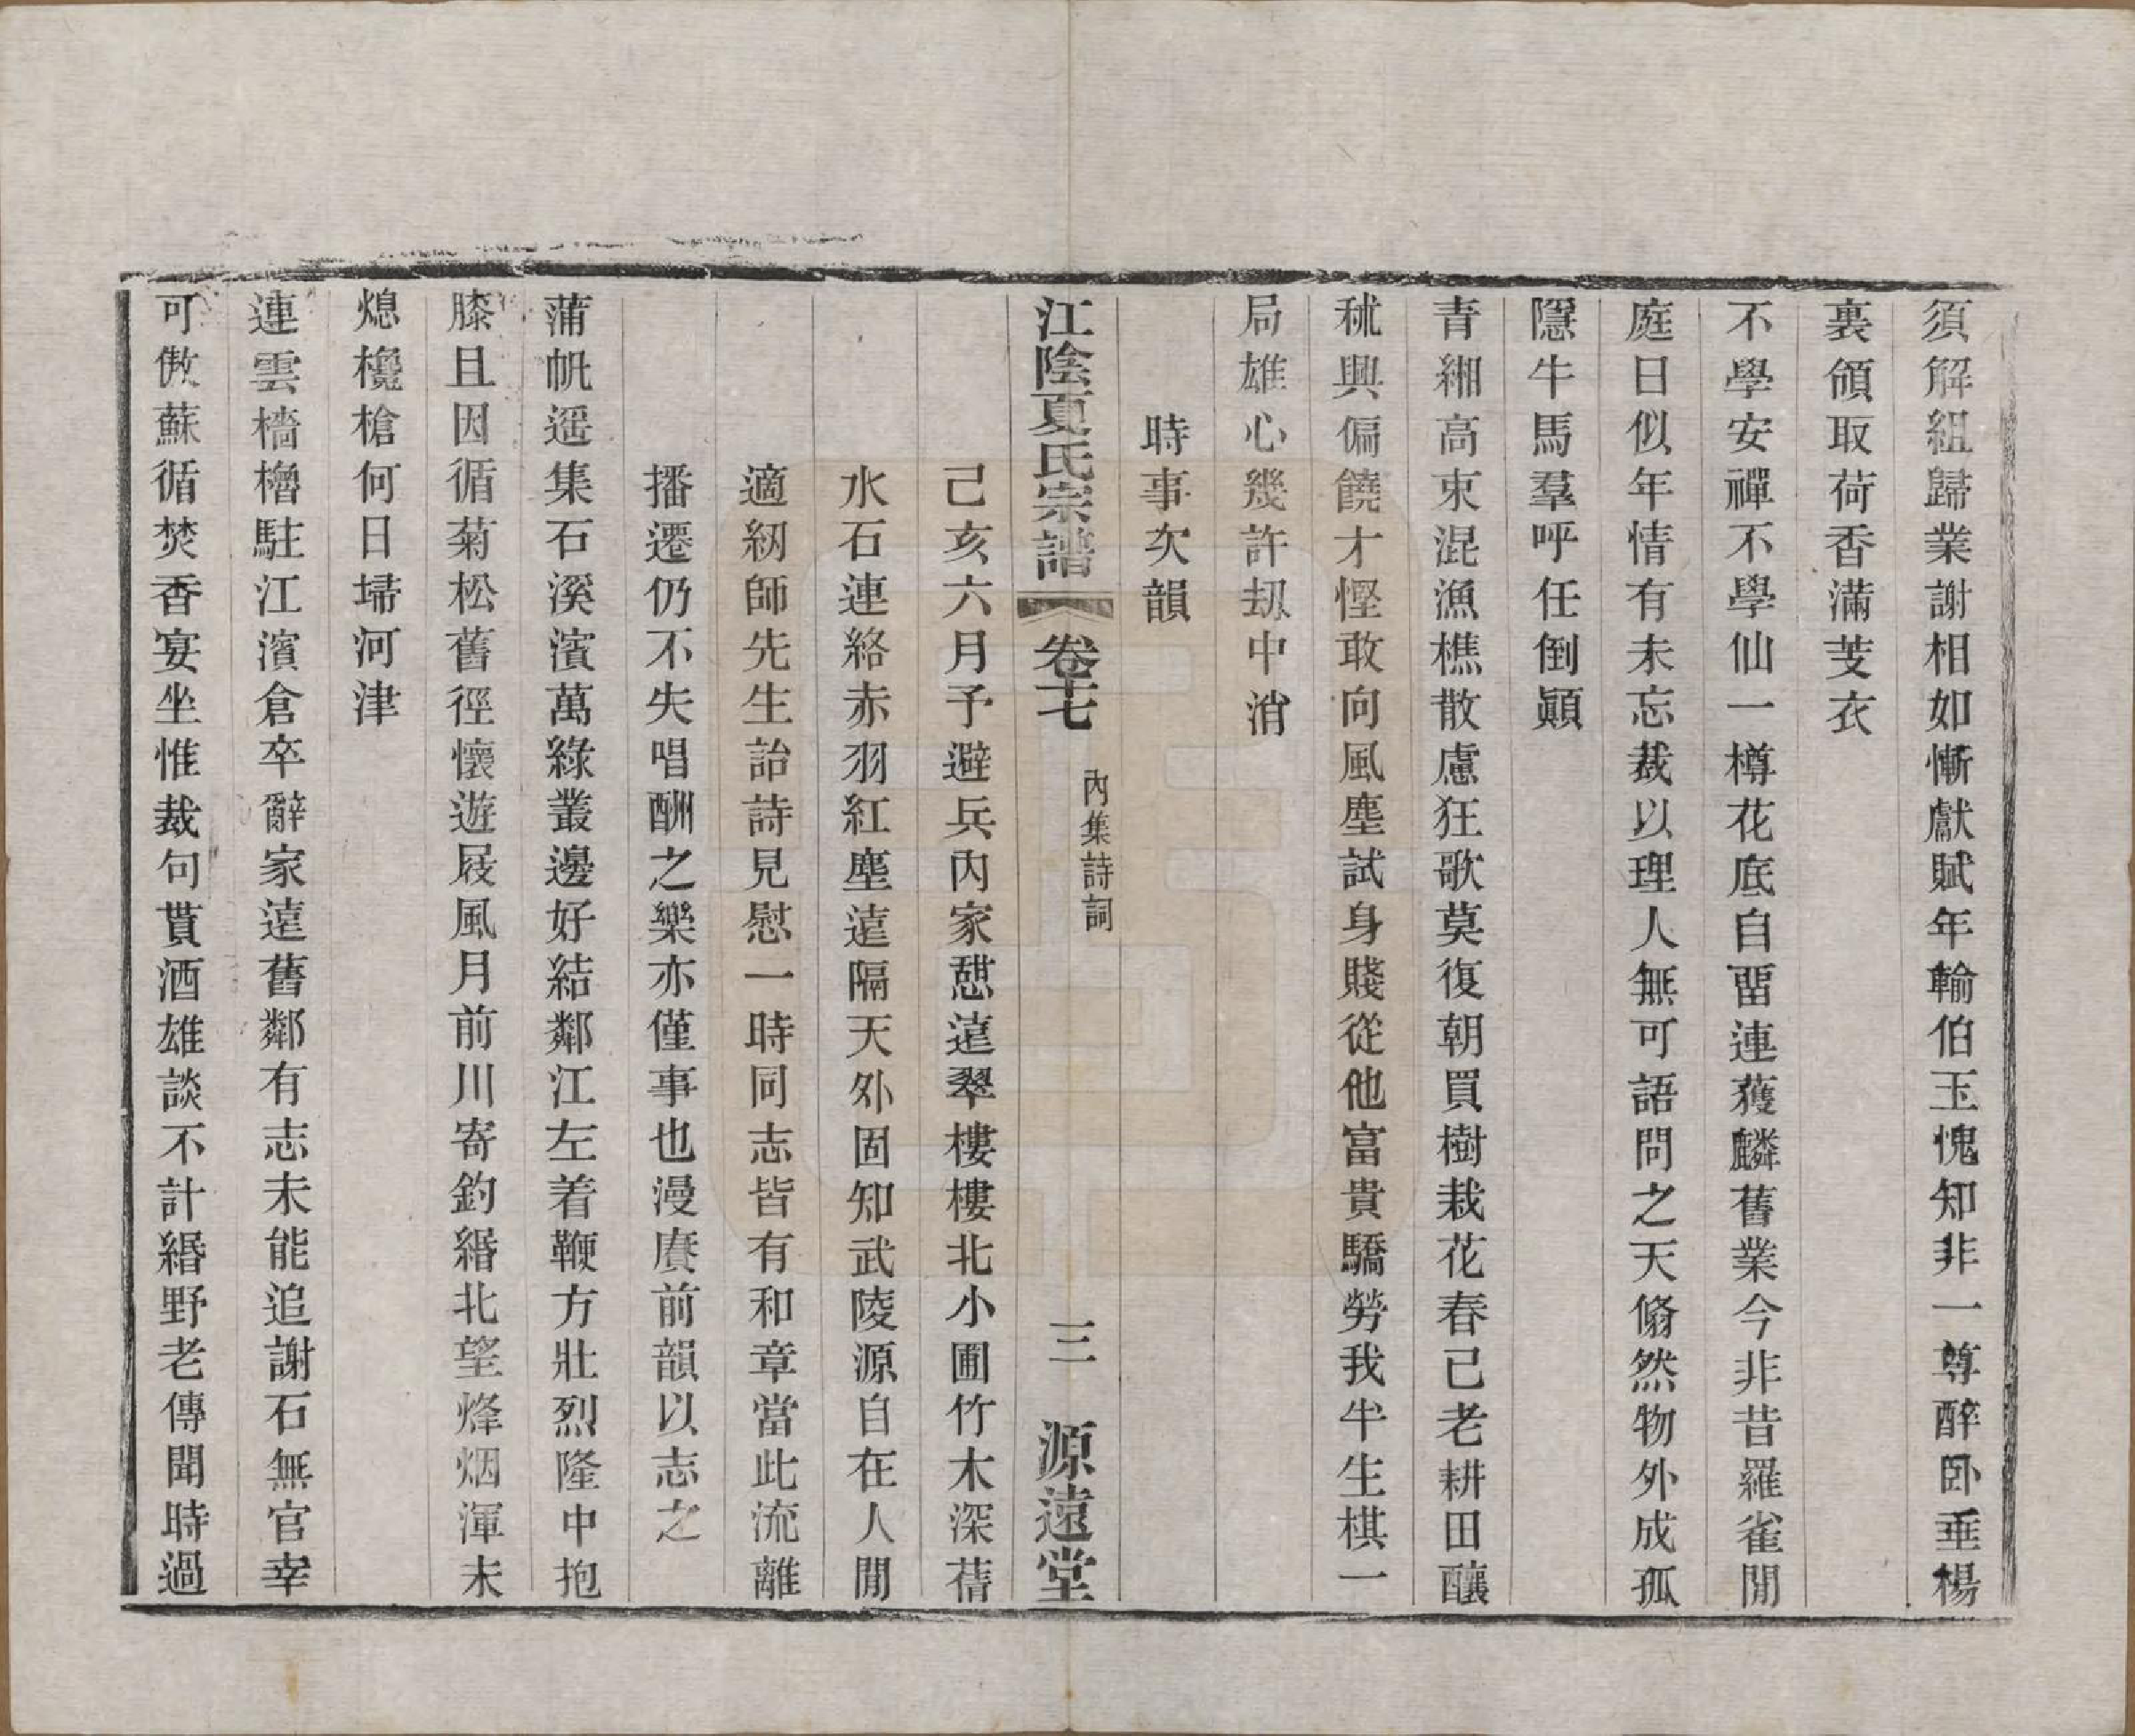 須解組歸業謝相如慚獻賦年輸伯玉愧知非一尊醉卧垂楊
裏頒取荷香滿芰衣
不學安禪不學仙一樽花底自畱連獲麟舊業今非昔羅雀閒
庭日似年情有未忘裁以理人無可語問之天翛然物外成孤
隱牛馬羣呼任倒顚
青緗高束混漁樵散慮狂歌莫復朝買樹栽花春已老耕田釀
秫興偏饒才慳敢向風塵試身賤從他富貴驕勞我半生棋一
局雄心幾許刼中消
時事次韻
江陰夏氏宗譜 卷十七 內集詩詞 三 源遠堂
己亥六月予避兵內家憇遠翠樓樓北小圃竹木深蒨
水石連絡赤羽紅塵遠隔天外固知武陵源自在人閒
適紉師先生詒詩見慰一時同志皆有和章當此流離
播遷仍不失唱酬之樂亦僅事也漫賡前韻以志之
蒲帆遥集石溪濱萬綠叢邊好結鄰江左着鞭方壯烈隆中抱
膝且因循菊松舊徑懷遊屐風月前川寄釣緡北望烽烟渾未
熄欃槍何日埽河津
連雲檣櫓駐江濱倉卒辭家遠舊鄰有志未能追謝石無官幸
可傲蘇循焚香宴坐惟裁句貰酒雄談不計緡野老傳聞時過